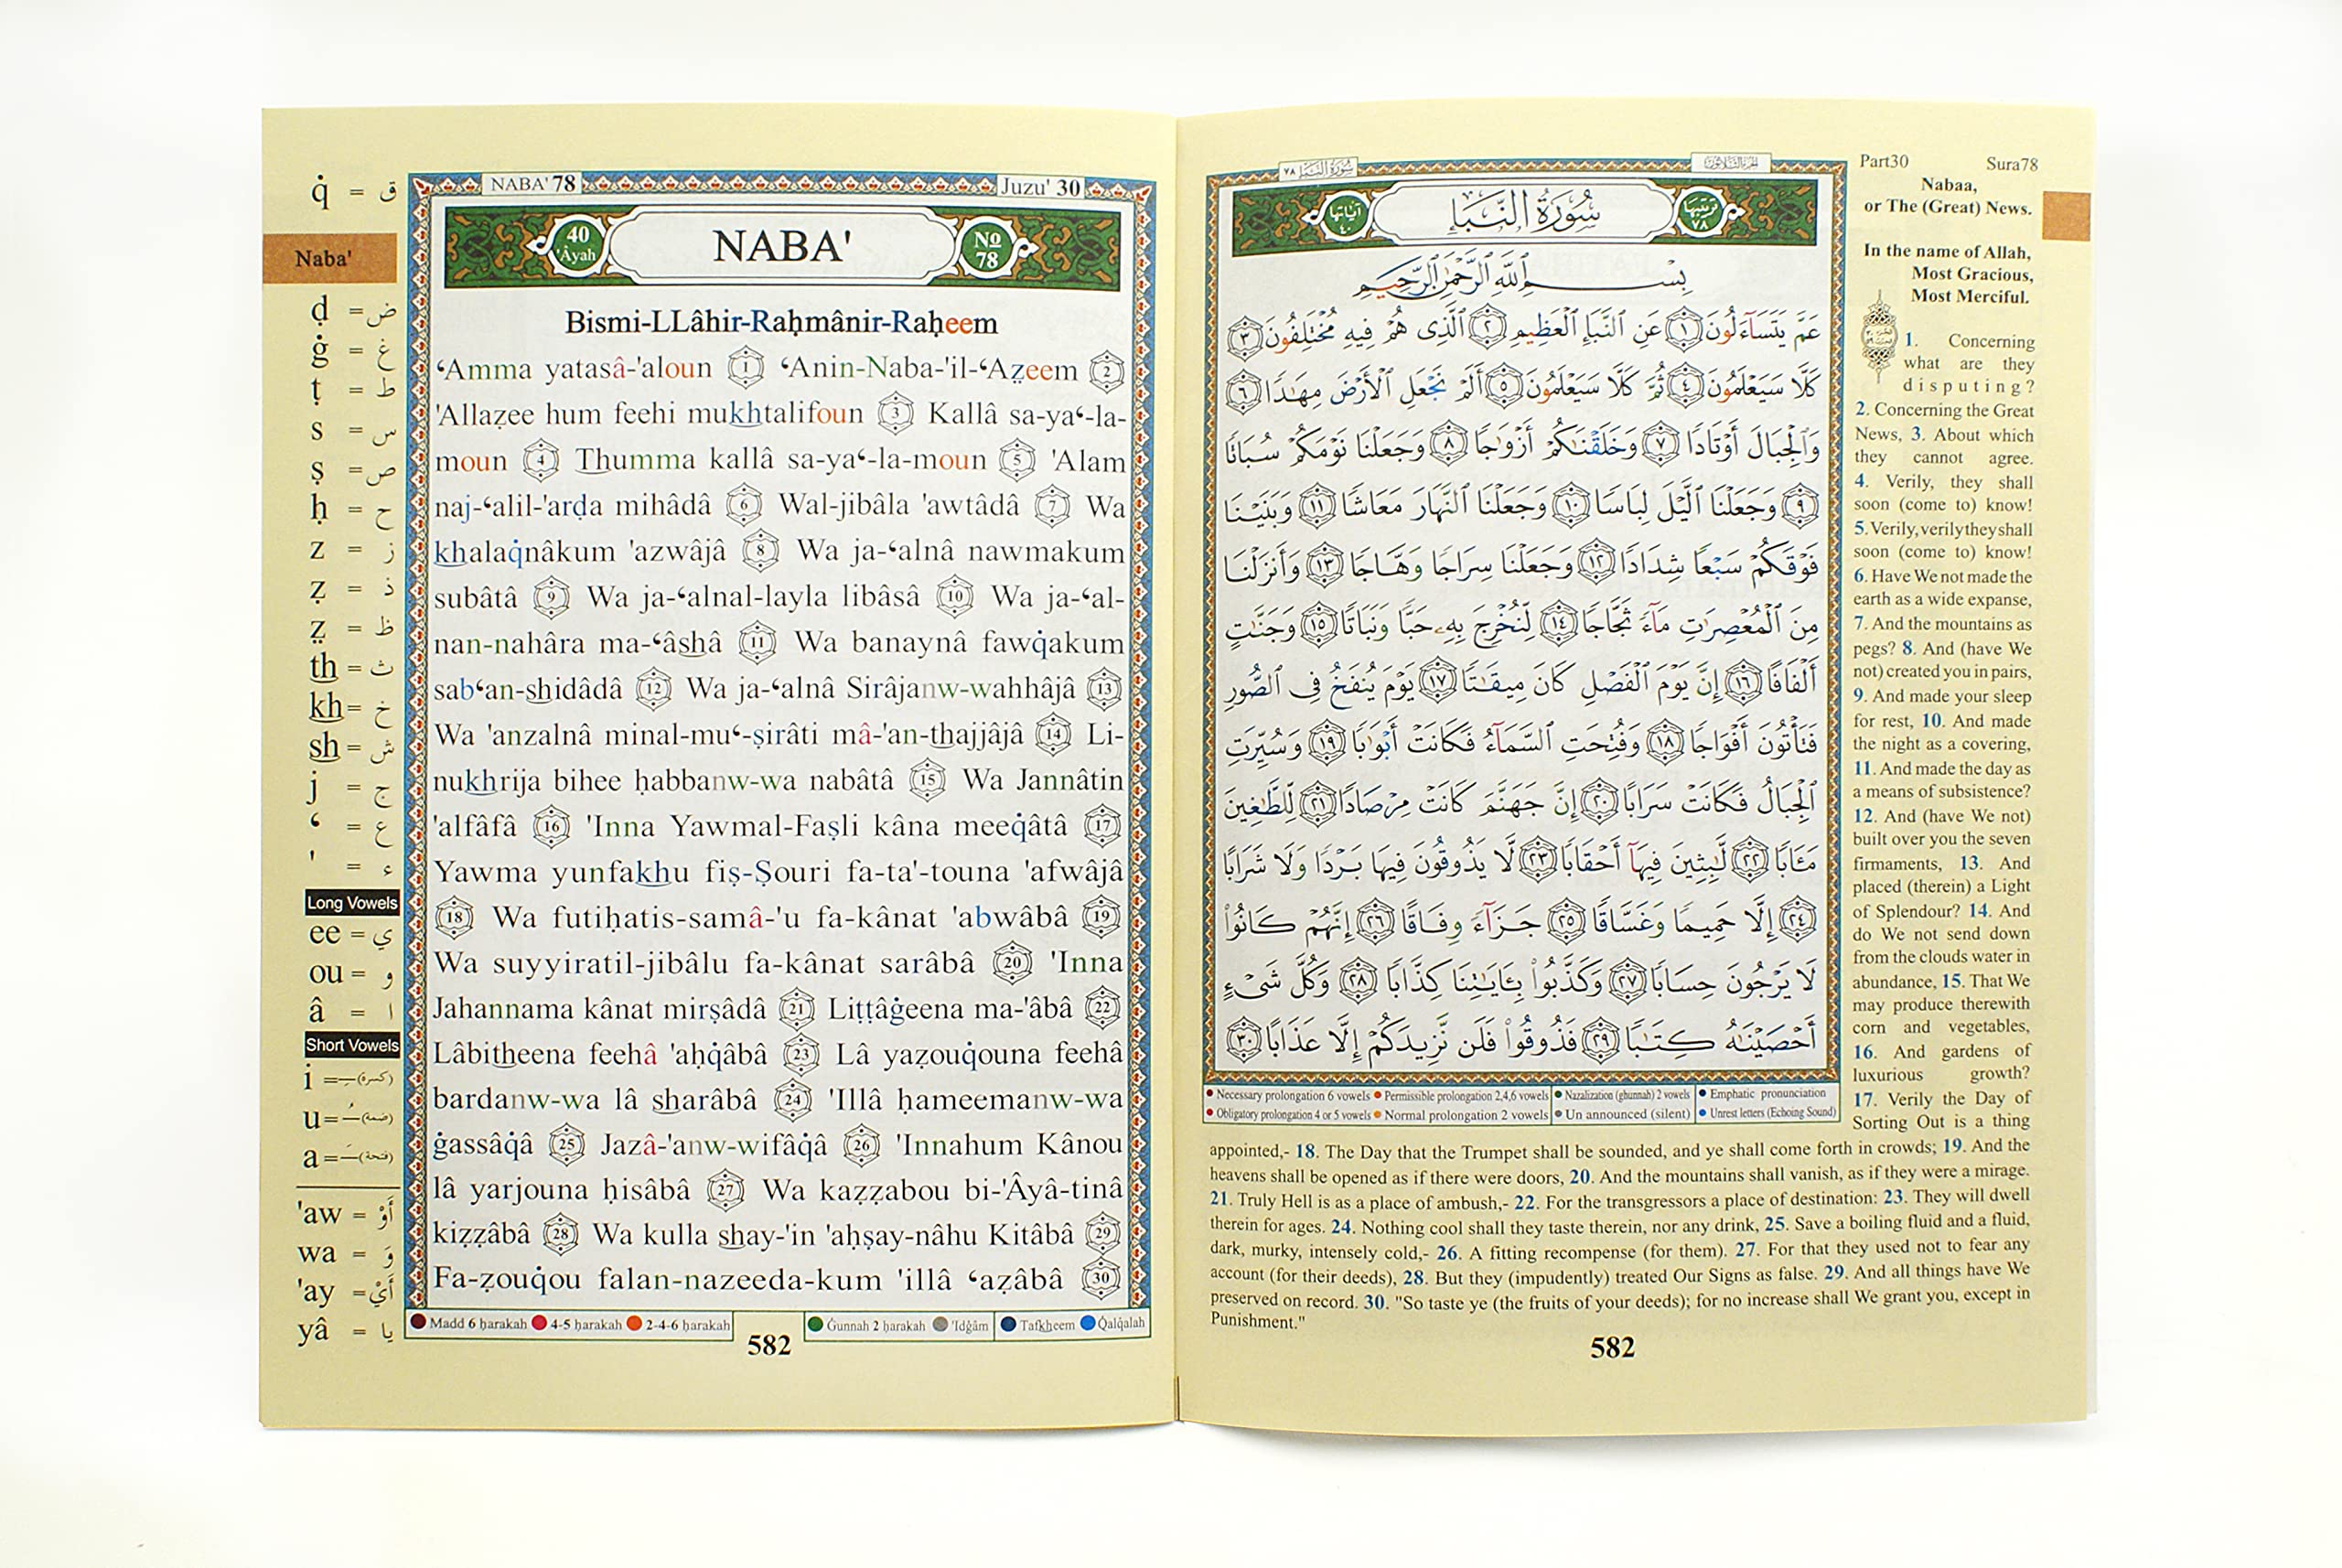 q̇ = ق
Naba'
ḍ = ض
ġ = غ
ṭ = ط
s = س
ṣ = ص
ḥ = ح
z = ز
ẓ = ذ
ẓ̈ = ظ
th = ث
kh = خ
sh = ش
j = ج
‘ = ع
' = ء
Long Vowels
ee = ي
ou = و
â = ا
Short Vowels
i = ـِ (كسرة)
u = ـُ (ضمة)
a = ـَ (فتحة)
'aw = أَوْ
wa = وَ
'ay = أَيْ
yâ = يا
NABA' 78 Juzu' 30
40 'Âyah NABA' No 78
Bismi-LLâhir-Raḥmânir-Raḥeem
‘Amma yatasâ-'aloun 1 ‘Anin-Naba-'il-‘Aẓ̈eem 2
'Allaẓee hum feehi mukhtalifoun 3 Kallâ sa-ya‘-la-
moun 4 Thumma kallâ sa-ya‘-la-moun 5 'Alam
naj-‘alil-'arḍa mihâdâ 6 Wal-jibâla 'awtâdâ 7 Wa
khalaq̇nâkum 'azwâjâ 8 Wa ja-‘alnâ nawmakum
subâtâ 9 Wa ja-‘alnal-layla libâsâ 10 Wa ja-‘al-
nan-nahâra ma-‘âshâ 11 Wa banaynâ fawq̇akum
sab‘an-shidâdâ 12 Wa ja-‘alnâ Sirâjanw-wahhâjâ 13
Wa 'anzalnâ minal-mu‘-ṣirâti mâ-'an-thajjâjâ 14 Li-
nukhrija bihee ḥabbanw-wa nabâtâ 15 Wa Jannâtin
'alfâfâ 16 'Inna Yawmal-Faṣli kâna meeq̇âtâ 17
Yawma yunfakhu fiṣ-Ṣouri fa-ta'-touna 'afwâjâ
18 Wa futiḥatis-samâ-'u fa-kânat 'abwâbâ 19
Wa suyyiratil-jibâlu fa-kânat sarâbâ 20 'Inna
Jahannama kânat mirṣâdâ 21 Liṭṭâġeena ma-'âbâ 22
Lâbitheena feehâ 'aḥq̇âbâ 23 Lâ yaẓouq̇ouna feehâ
bardanw-wa lâ sharâbâ 24 'Illâ ḥameemanw-wa
ġassâq̇â 25 Jazâ-'anw-wifâq̇â 26 'Innahum Kânou
lâ yarjouna ḥisâbâ 27 Wa kaẓẓabou bi-'Âyâ-tinâ
kiẓẓâbâ 28 Wa kulla shay-'in 'aḥṣay-nâhu Kitâbâ 29
Fa-ẓouq̇ou falan-nazeeda-kum 'illâ ‘aẓâbâ 30
Madd 6 ḥarakah 4-5 ḥarakah 2-4-6 ḥarakah Ġunnah 2 ḥarakah 'Idġâm Tafkheem Q̇alq̇alah
582
سُورَةُ النَّبَإِ ٧٨ الجزء الثلاثون
ترتيبها ٧٨ سُورَةُ النَّبَإِ آياتها ٤٠
بِسْمِ ٱللَّهِ ٱلرَّحْمَٰنِ ٱلرَّحِيمِ
عَمَّ يَتَسَآءَلُونَ ١ عَنِ ٱلنَّبَإِ ٱلْعَظِيمِ ٢ ٱلَّذِى هُمْ فِيهِ مُخْتَلِفُونَ ٣
كَلَّا سَيَعْلَمُونَ ٤ ثُمَّ كَلَّا سَيَعْلَمُونَ ٥ أَلَمْ نَجْعَلِ ٱلْأَرْضَ مِهَٰدًا ٦
وَٱلْجِبَالَ أَوْتَادًا ٧ وَخَلَقْنَٰكُمْ أَزْوَٰجًا ٨ وَجَعَلْنَا نَوْمَكُمْ سُبَاتًا
٩ وَجَعَلْنَا ٱلَّيْلَ لِبَاسًا ١٠ وَجَعَلْنَا ٱلنَّهَارَ مَعَاشًا ١١ وَبَنَيْنَا
فَوْقَكُمْ سَبْعًا شِدَادًا ١٢ وَجَعَلْنَا سِرَاجًا وَهَّاجًا ١٣ وَأَنزَلْنَا
مِنَ ٱلْمُعْصِرَٰتِ مَآءً ثَجَّاجًا ١٤ لِّنُخْرِجَ بِهِۦ حَبًّا وَنَبَاتًا ١٥ وَجَنَّٰتٍ
أَلْفَافًا ١٦ إِنَّ يَوْمَ ٱلْفَصْلِ كَانَ مِيقَٰتًا ١٧ يَوْمَ يُنفَخُ فِى ٱلصُّورِ
فَتَأْتُونَ أَفْوَاجًا ١٨ وَفُتِحَتِ ٱلسَّمَآءُ فَكَانَتْ أَبْوَٰبًا ١٩ وَسُيِّرَتِ
ٱلْجِبَالُ فَكَانَتْ سَرَابًا ٢٠ إِنَّ جَهَنَّمَ كَانَتْ مِرْصَادًا ٢١ لِّلطَّٰغِينَ
مَـَٔابًا ٢٢ لَّٰبِثِينَ فِيهَآ أَحْقَابًا ٢٣ لَّا يَذُوقُونَ فِيهَا بَرْدًا وَلَا شَرَابًا
٢٤ إِلَّا حَمِيمًا وَغَسَّاقًا ٢٥ جَزَآءً وِفَاقًا ٢٦ إِنَّهُمْ كَانُوا۟
لَا يَرْجُونَ حِسَابًا ٢٧ وَكَذَّبُوا۟ بِـَٔايَٰتِنَا كِذَّابًا ٢٨ وَكُلَّ شَىْءٍ
أَحْصَيْنَٰهُ كِتَٰبًا ٢٩ فَذُوقُوا۟ فَلَن نَّزِيدَكُمْ إِلَّا عَذَابًا ٣٠
Necessary prolongation 6 vowels Permissible prolongation 2,4,6 vowels Nazalization (ghunnah) 2 vowels Emphatic pronunciation
Obligatory prolongation 4 or 5 vowels Normal prolongation 2 vowels Un announced (silent) Unrest letters (Echoing Sound)
Part30 Sura78
Nabaa,
or The (Great) News.
In the name of Allah,
Most Gracious,
Most Merciful.
1. Concerning
what are they
disputing?
2. Concerning the Great
News, 3. About which
they cannot agree.
4. Verily, they shall
soon (come to) know!
5. Verily, verily they shall
soon (come to) know!
6. Have We not made the
earth as a wide expanse,
7. And the mountains as
pegs? 8. And (have We
not) created you in pairs,
9. And made your sleep
for rest, 10. And made
the night as a covering,
11. And made the day as
a means of subsistence?
12. And (have We not)
built over you the seven
firmaments, 13. And
placed (therein) a Light
of Splendour? 14. And
do We not send down
from the clouds water in
abundance, 15. That We
may produce therewith
corn and vegetables,
16. And gardens of
luxurious growth?
17. Verily the Day of
Sorting Out is a thing
appointed,- 18. The Day that the Trumpet shall be sounded, and ye shall come forth in crowds; 19. And the
heavens shall be opened as if there were doors, 20. And the mountains shall vanish, as if they were a mirage.
21. Truly Hell is as a place of ambush,- 22. For the transgressors a place of destination: 23. They will dwell
therein for ages. 24. Nothing cool shall they taste therein, nor any drink, 25. Save a boiling fluid and a fluid,
dark, murky, intensely cold,- 26. A fitting recompense (for them). 27. For that they used not to fear any
account (for their deeds), 28. But they (impudently) treated Our Signs as false. 29. And all things have We
preserved on record. 30. "So taste ye (the fruits of your deeds); for no increase shall We grant you, except in
Punishment."
582